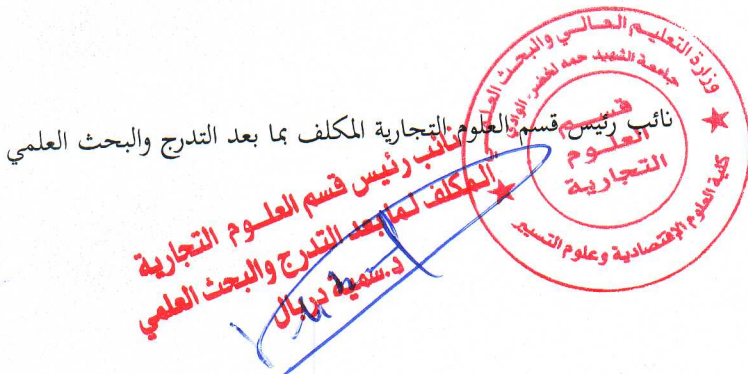 نائب رئيس قسم العلوم التجارية المكلف بما بعد التدرج والبحث العلمي
نائب رئيس قسم العلوم التجارية
المكلف لما بعد التدرج والبحث العلمي
د.سمية دربال
وزارة التعليم العالي والبحث العلمي
جامعة الشهيد حمه لخضر الوادي
كلية العلوم الإقتصادية وعلوم التسيير
قسم
العلوم
التجارية